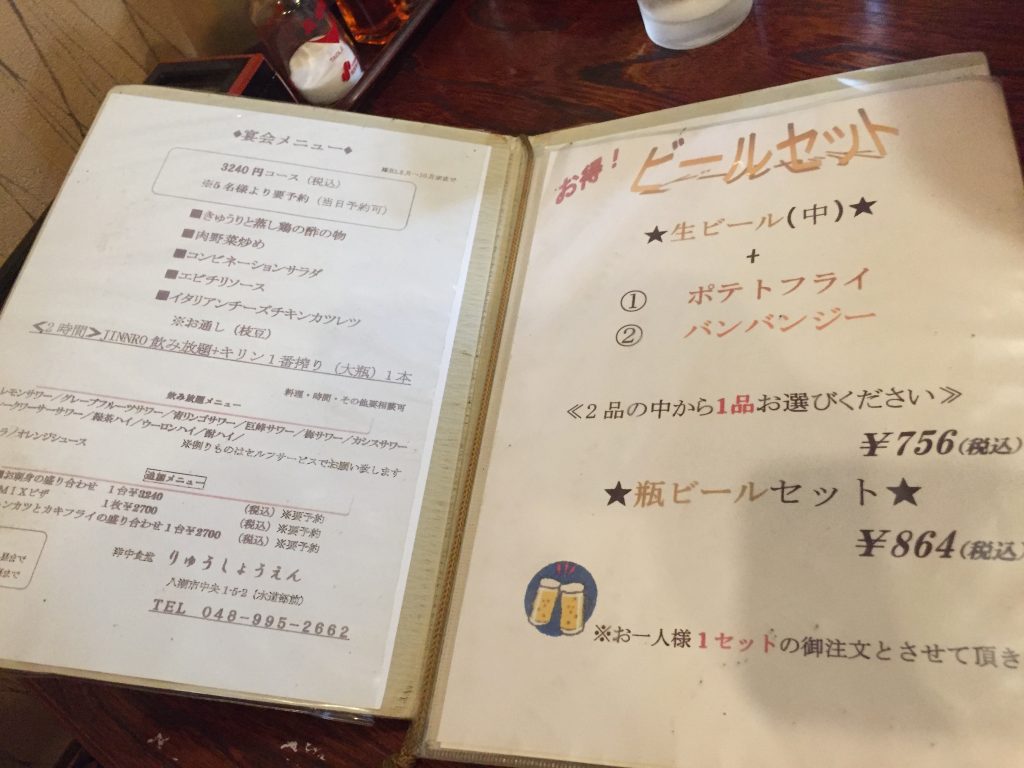 ◆宴会メニュー◆
3240円コース（税込）
※5名様より要予約（当日予約可）
■きゅうりと蒸し鶏の酢の物
■肉野菜炒め
■コンビネーションサラダ
■エビチリソース
■イタリアンチーズチキンカツレツ
※お通し（枝豆）
≪2時間≫JINNRO飲み放題+キリン1番搾り（大瓶）1本
料理・時間・その他要相談可
飲み放題メニュー
レモンサワー／グレープフルーツサワー／青リンゴサワー／巨峰サワー／梅サワー／カシスサワー
ークワーサーサワー／緑茶ハイ／ウーロンハイ／酎ハイ／
ラ／オレンジジュース
※割りものはセルフサービスでお願い致します
追加メニュー
お刺身の盛り合わせ 1台¥3240 （税込）※要予約
MIXピザ 1枚¥2700 （税込）※要予約
ンカツとカキフライの盛り合わせ1台¥2700 （税込）※要予約
りゅうしょうえん
八潮市中央1-5-2（水道部前）
TEL 048-995-2662
お得！ビールセット
★生ビール(中)★
+
① ポテトフライ
② バンバンジー
≪2品の中から1品お選びください≫
¥756(税込)
★瓶ビールセット★
¥864(税込)
※お一人様1セットの御注文とさせて頂き